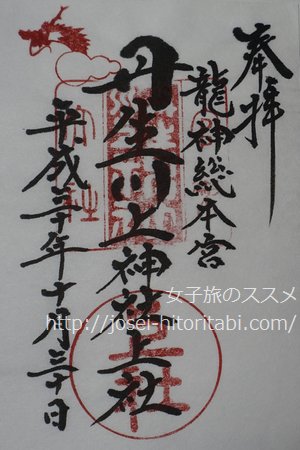 奉拝
龍神総本宮
丹生川上神社上社
平成三十年十月三十日
女子旅のススメ
http://josei-hitoritabi.com/